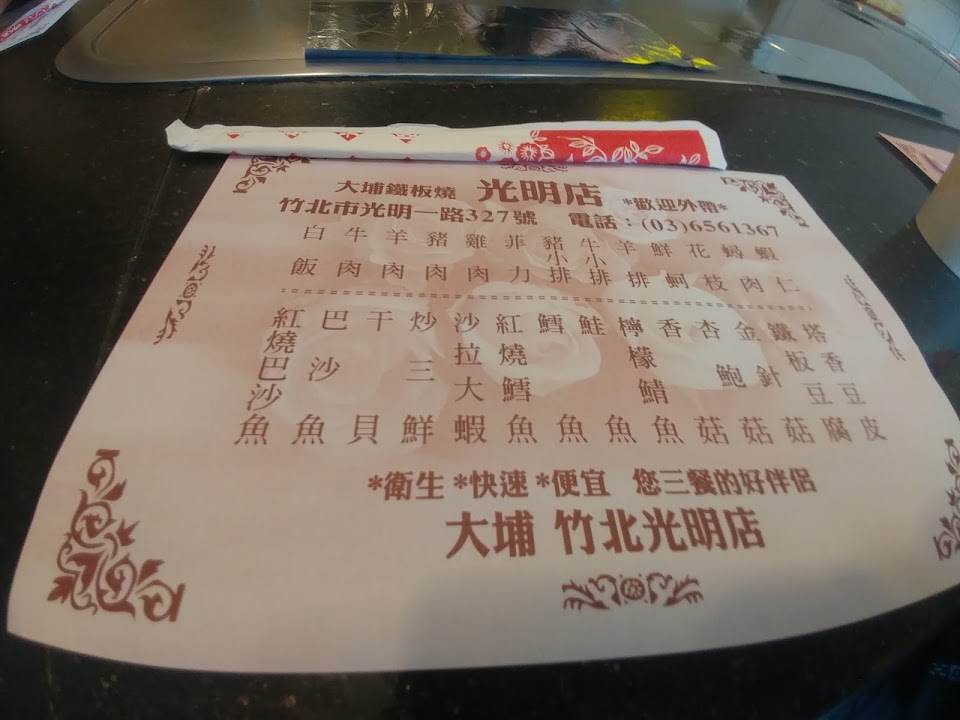 大埔鐵板燒 光明店 *歡迎外帶*
竹北市光明一路327號 電話：(03)6561367
白飯
牛肉
羊肉
豬肉
雞肉
菲力
豬小排
牛小排
羊排
鮮蚵
花枝
蟳肉
蝦仁
紅燒巴沙魚
巴沙魚
干貝
炒三鮮
沙拉大蝦
紅燒鱈魚
鱈魚
鮭魚
檸檬鯖魚
香菇
杏鮑菇
金針菇
鐵板豆腐
塔香豆皮
*衛生 *快速 *便宜 您三餐的好伴侶
大埔 竹北光明店